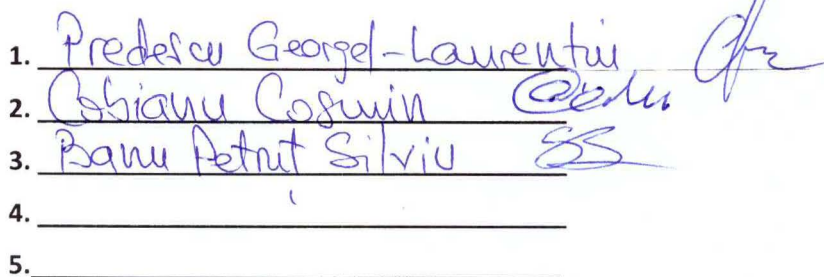 1. Predescu Georgel-Laurentiu
2. Cobianu Cosmin
3. Banu Petruț Silviu
4.
5.